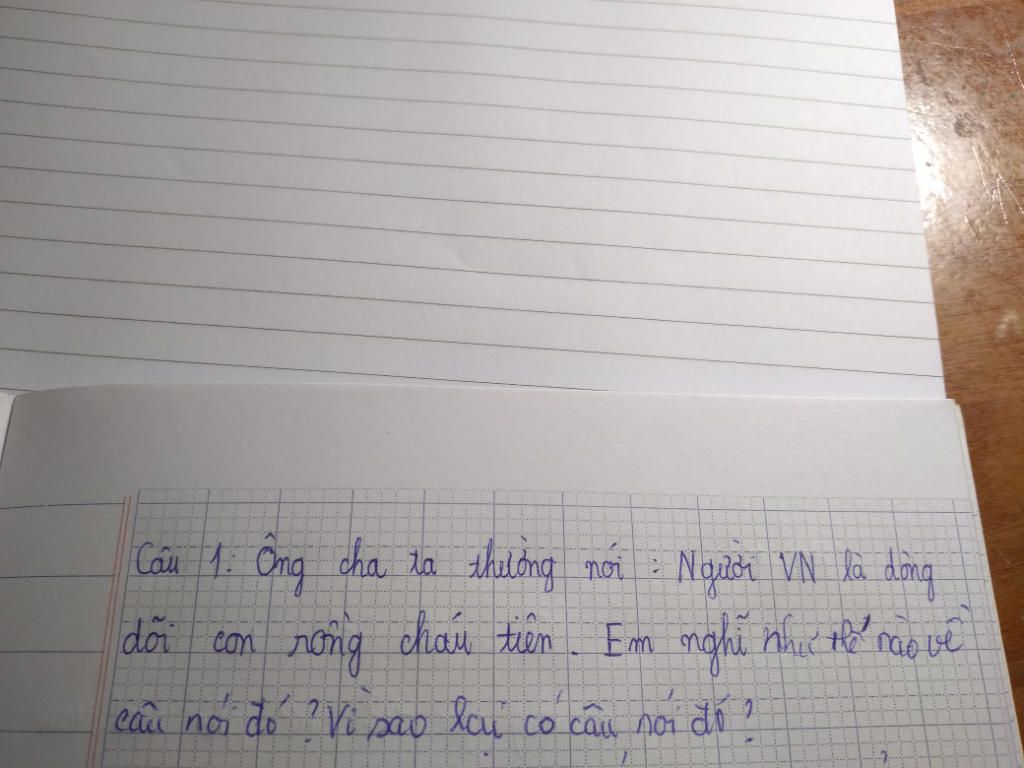 Câu 1: Ông cha ta thường nói : Người VN là dòng
dõi con rồng cháu tiên. Em nghĩ như thế nào về
câu nói đó? Vì sao lại có câu nói đó?